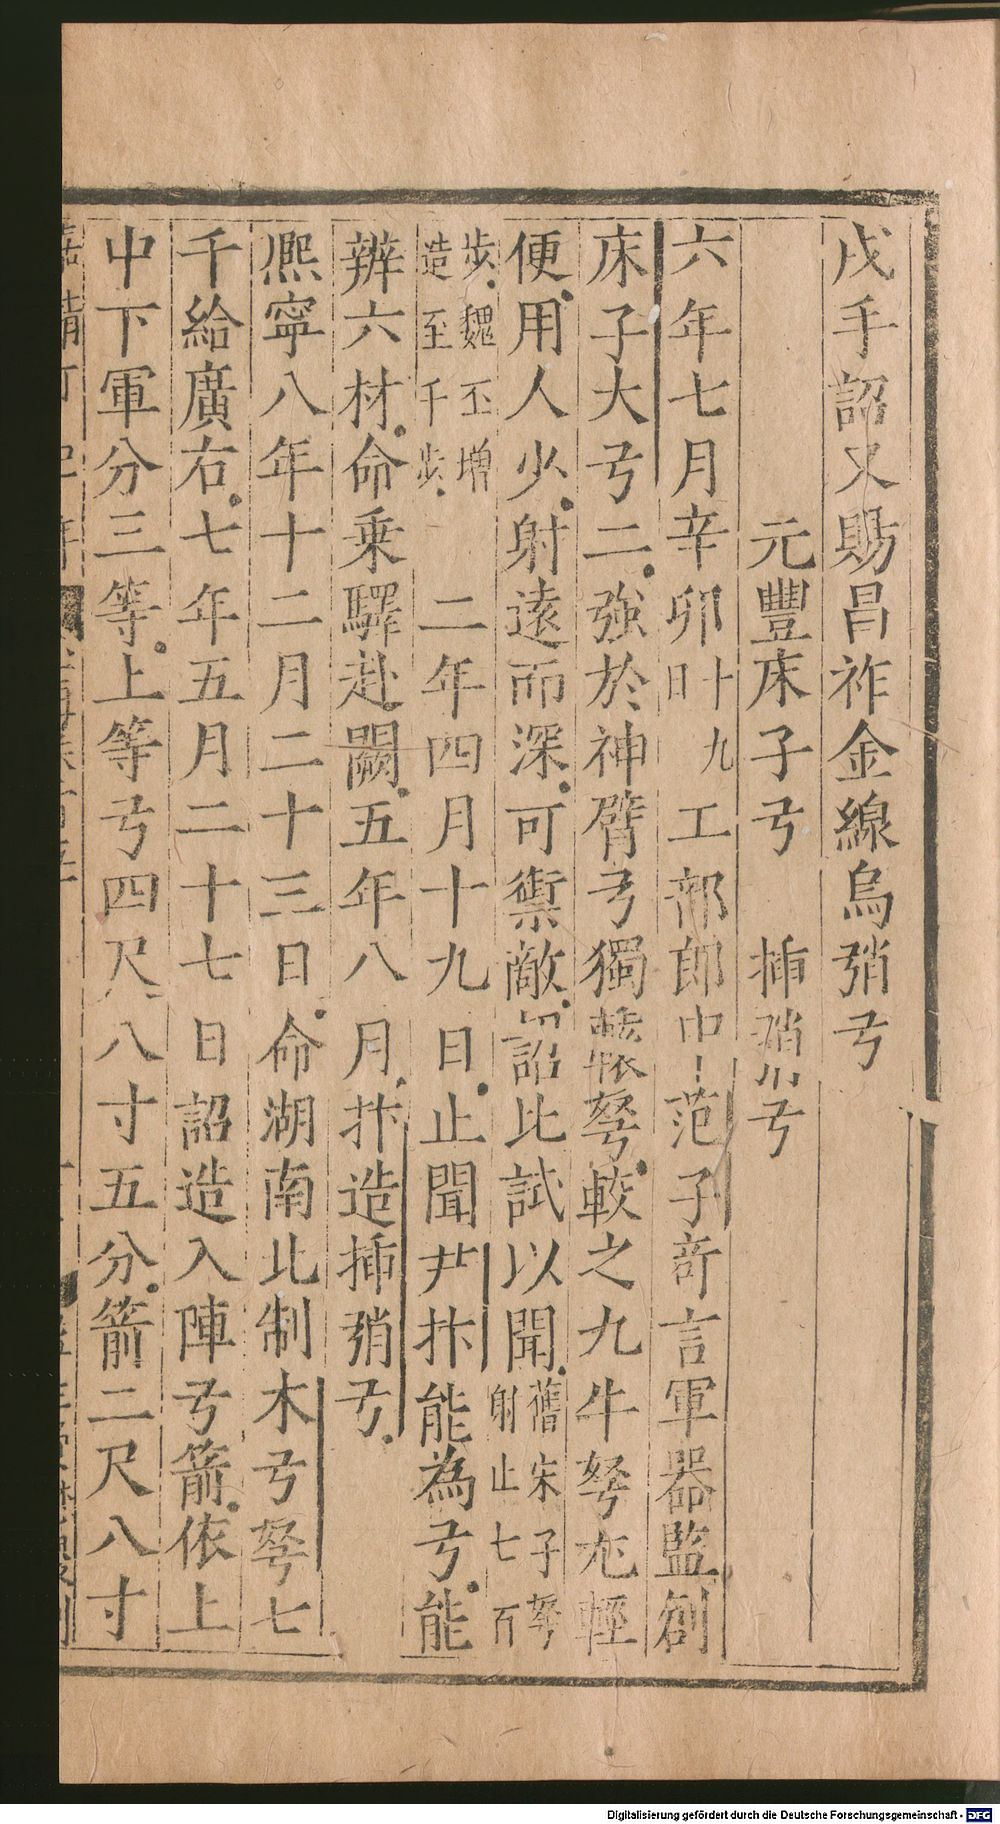 戊手詔又賜昌祚金線烏弰弓
元豐床子弓　挿弰弓
六年七月辛卯十九日工部郎中范子奇言軍器監創
床子大弓二強於神臂弓獨轅弩較之九牛弩尤輕
便用人少射遠而深可禦敵詔比試以聞舊床子弩射止七百
步魏丕增造至千步　二年四月十九日止聞尹抃能為弓能
辨六材命乗驛赴闕五年八月抃造挿弰弓
熈寧八年十二月二十三日命湖南北制木弓弩七
千給廣右七年五月二十七日詔造入陣弓箭依上
中下軍分三等上等弓四尺八寸五分箭二尺八寸
Digitalisierung gefördert durch die Deutsche Forschungsgemeinschaft - DFG